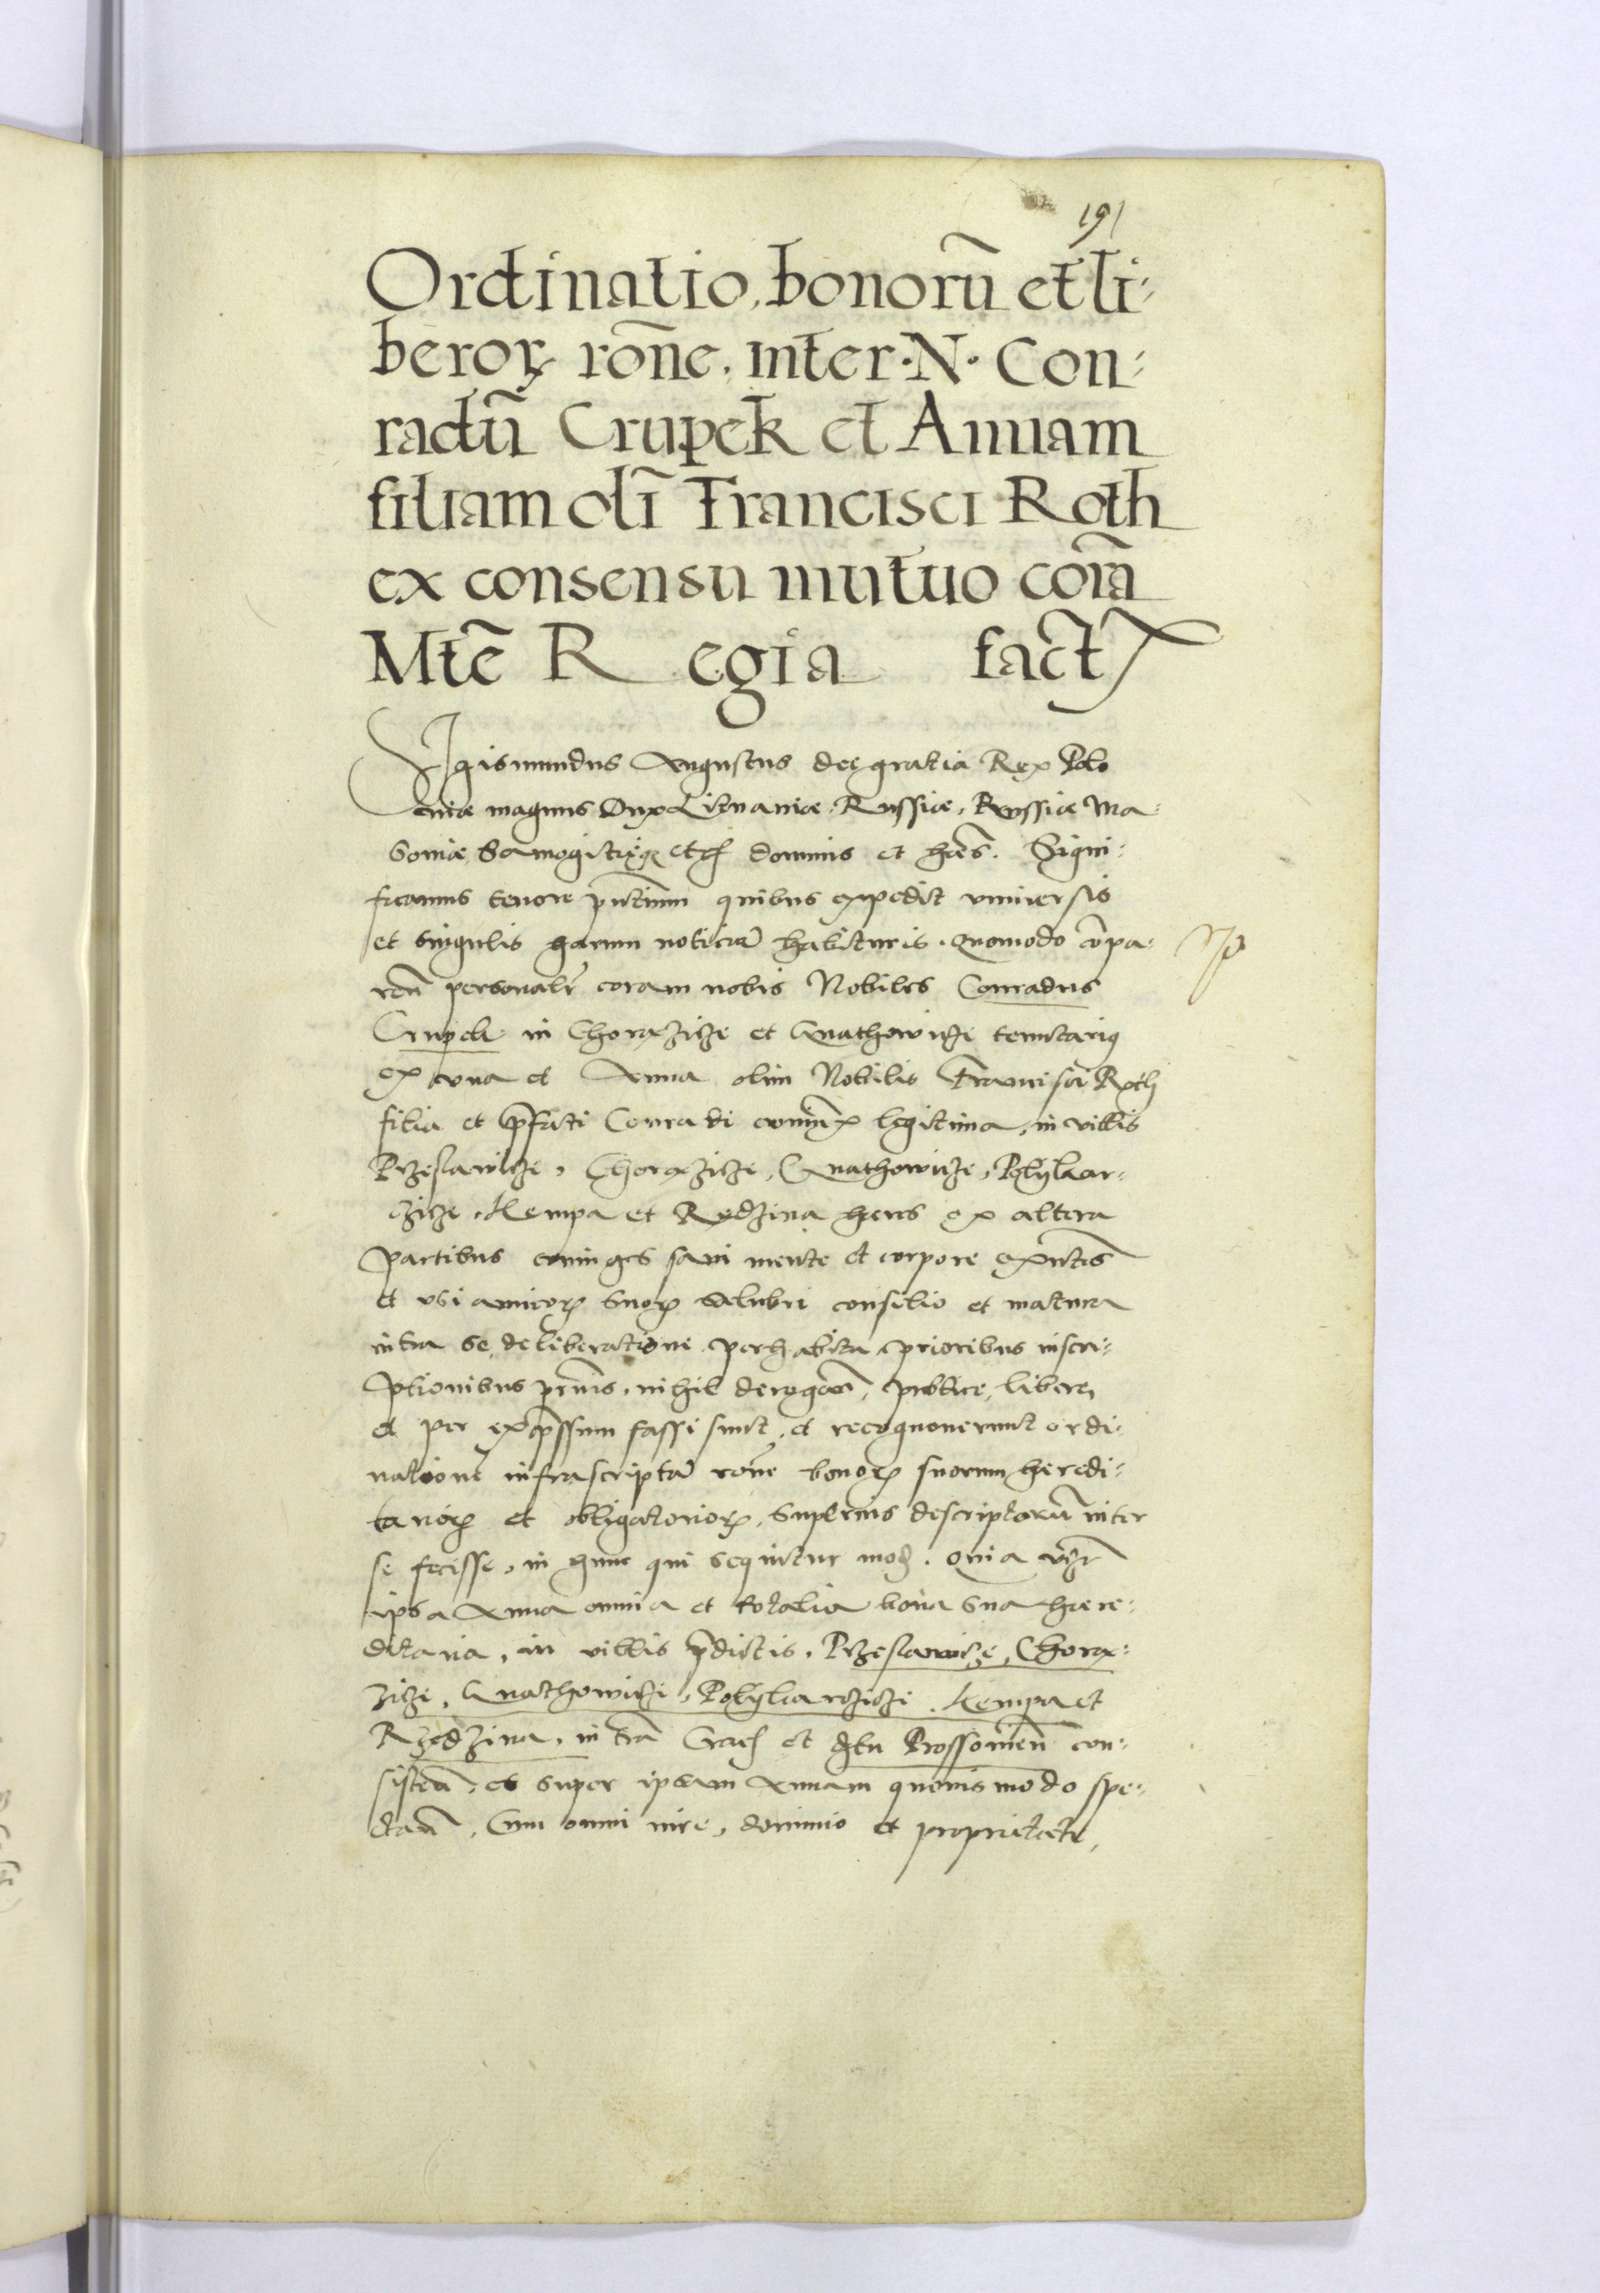 191
Ordinatio, bonorū et li-
beroꝝ rōne, inter · N · Con-
radū Crupek et Annam
filiam olī Francisci Roth
ex consensu mutuo corā
Mtē Regia fact
Sigismundus Augustus dei gratia Rex Polo
niæ magnus Dux Lithuaniæ, Russiæ, Prussiæ Ma-
soviæ, Samogitiæq̢ etc̄ dominus et hæs. Signi-
ficamus tenore pn̄tium quibus expedit universis
et singulis harum noticiā habituris. Quomodo cōpa-
ren̄ personalr̄ coram nobis Nobiles Conradus
Crupek in Chorazicze et Gnathowicze tenutariq
ex una et Anna olim Nobilis Francisci Roth
filia et p̄fati Conradi coniunx legitima, in villis
Przeslawicze, Chorazicze, Gnathowicze, Polykar-
czicze, Kempa et Rzedzina hæres ex altera
partibus coniuges sani mente et corpore exn̄tes
et usi amicoꝝ suoꝝ salubri consilio et matura
intra se deliberatione perhabita, prioribus inscri-
ptionibus p̄miss, nihil derogan̄, publice, libere,
et per exp̄ssum fassi sunt, et recognoverunt ordi-
nationē infrascriptā rōne bonoꝝ suorum heredi-
tarioꝝ et obligatorioꝝ, superius descriptorū inter
se fecisse, in hunc qui sequitur modū. Quia
ipsa Anna omnia et totalia bona sua hære-
ditaria, in villis p̄dictis, Przeslawicze, Chora-
zicze, Gnathowicze, Polykarczicze, Kempa et
Rzedzina, in trā Crac̄ et ds̄tu Prossovien̄ con-
sisten̄, et super ipsam Annam quovis modo spe-
ctan̄, Cum omni iure, dominio et proprietate,